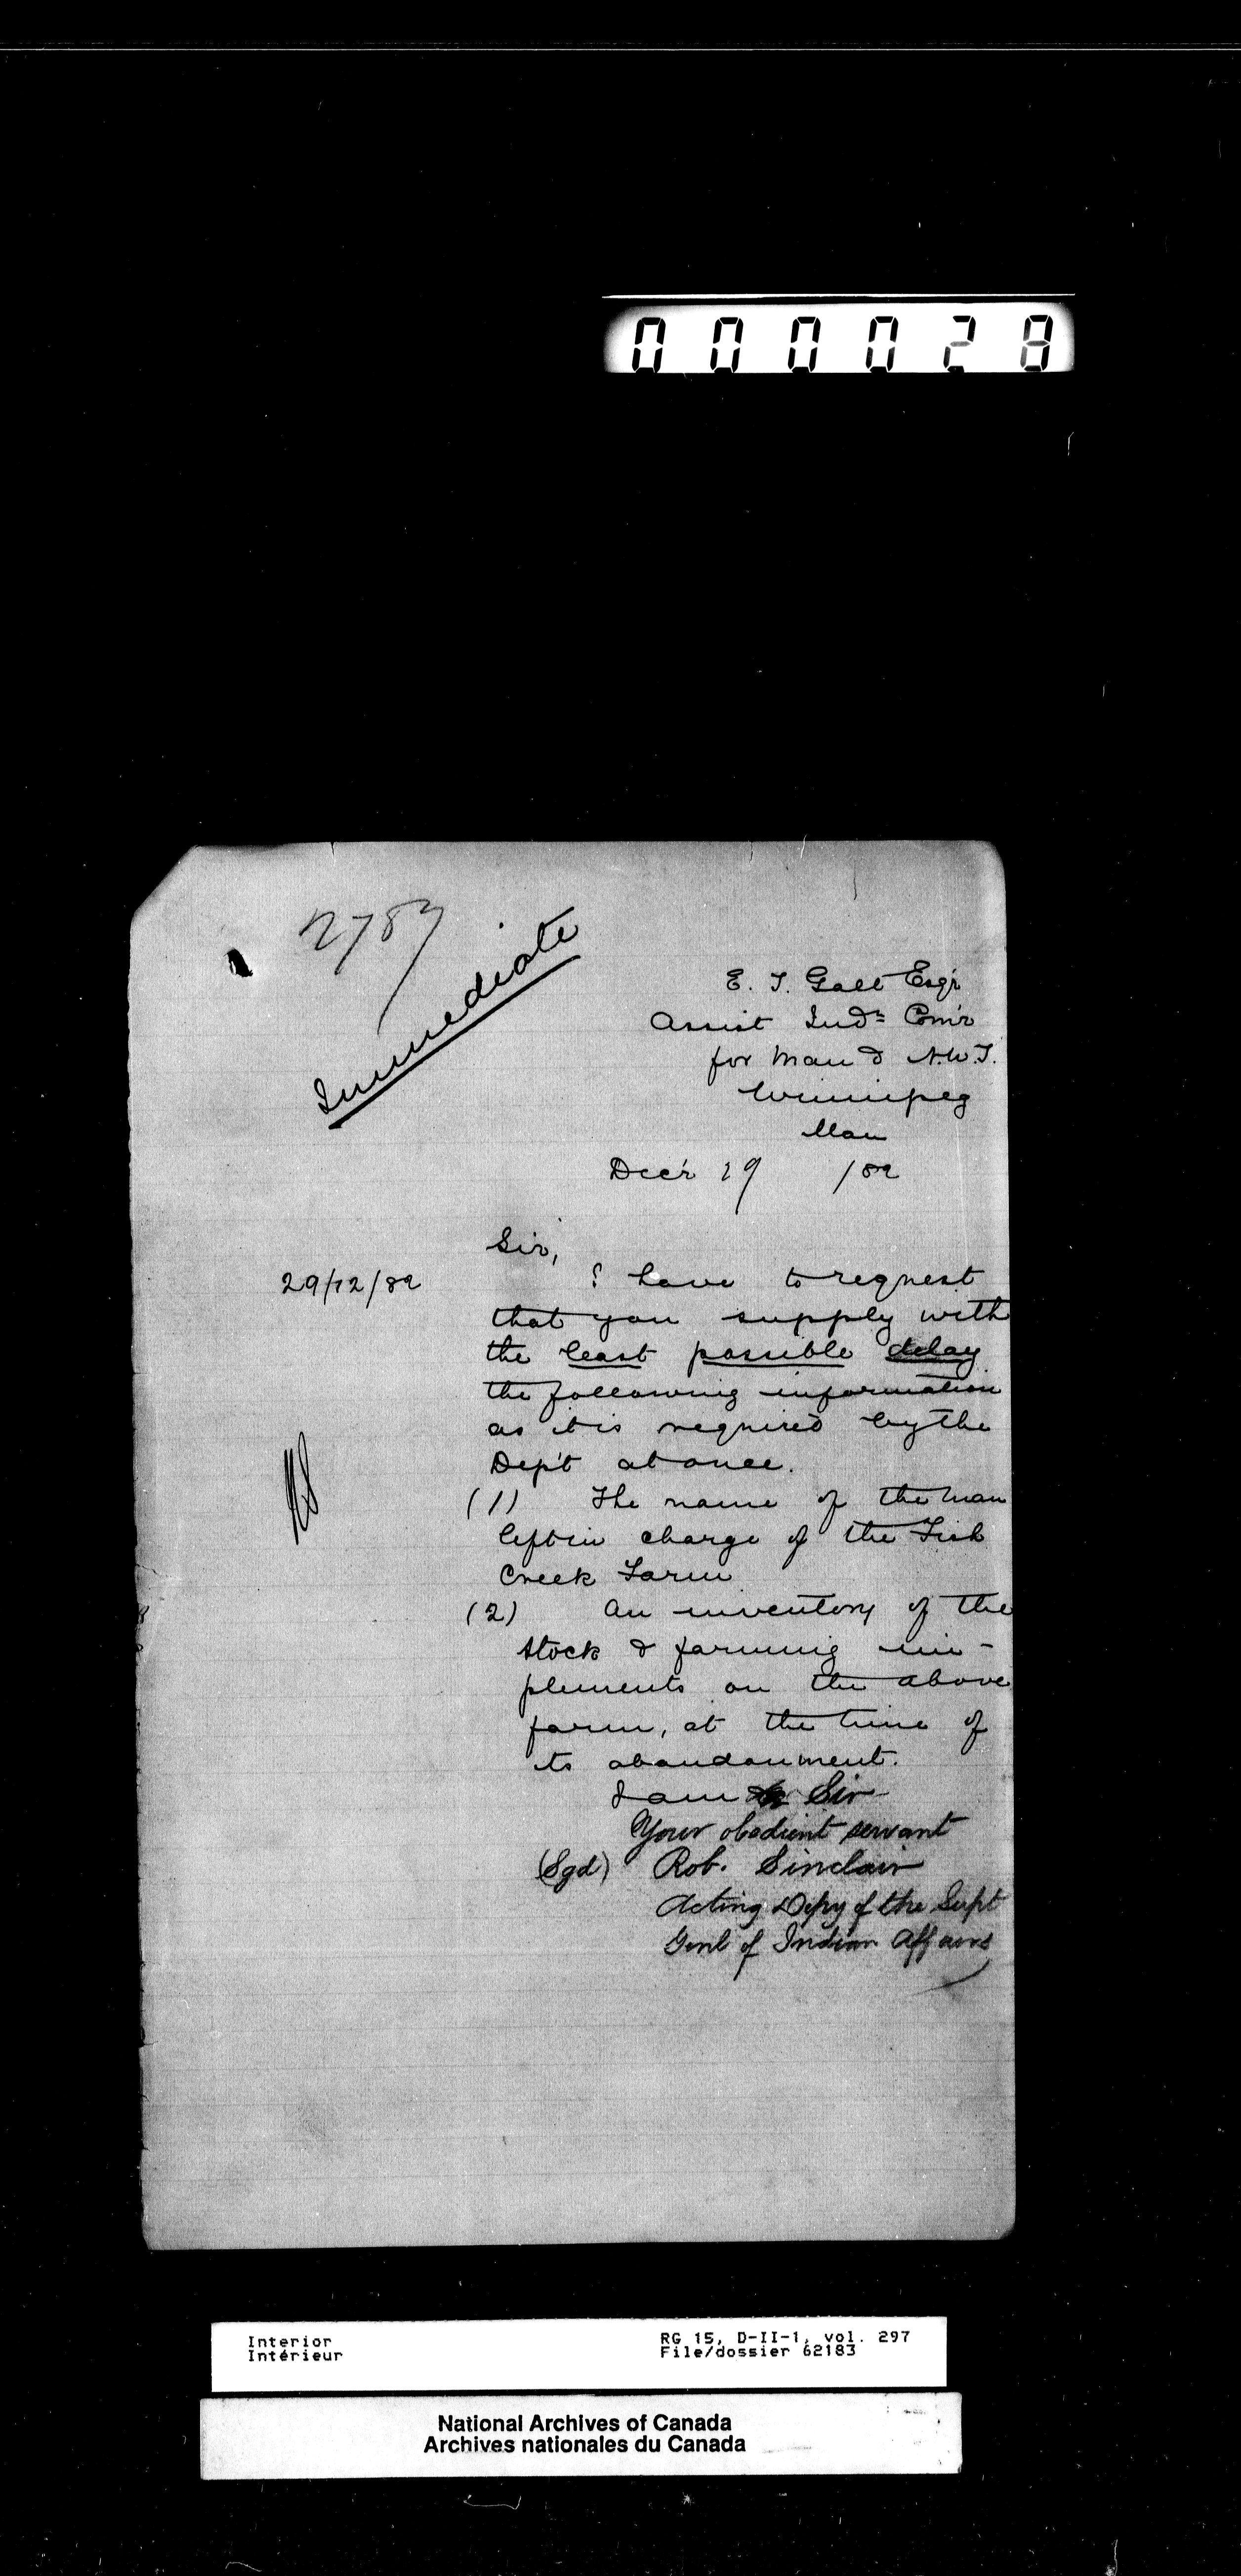 000028
2783
Immediate
E. T. Galt Esqr
Assist Indn Com'r
for Man & N.W.T.
Winnipeg
Man
Dec'r 29 /82
Sir,
29/12/82
I have to request
that you supply with
the least possible delay
the following information
as it is required by the
Dep't at once.
(1) The name of the man
left in charge of the Fish
Creek Farm
(2) An inventory of the
stock & farming im-
plements on the above
farm, at the time of
its abandonment.
I am Sir
Your obedient servant
(Sgd) Rob. Sinclair
Acting Depy of the Supt
Genl of Indian Affairs
Interior
Intérieur
RG 15, D-II-1, vol. 297
File/dossier 62183
National Archives of Canada
Archives nationales du Canada